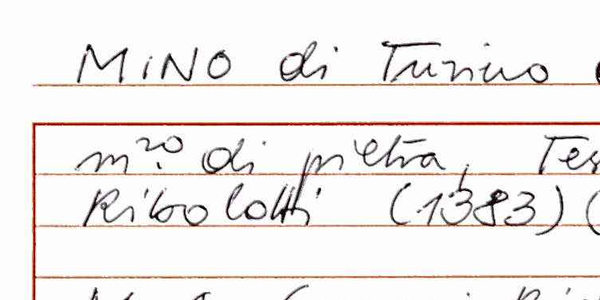 MiNO di Turino
m.ro di pietra, Tes
Ribolotti (1383) (